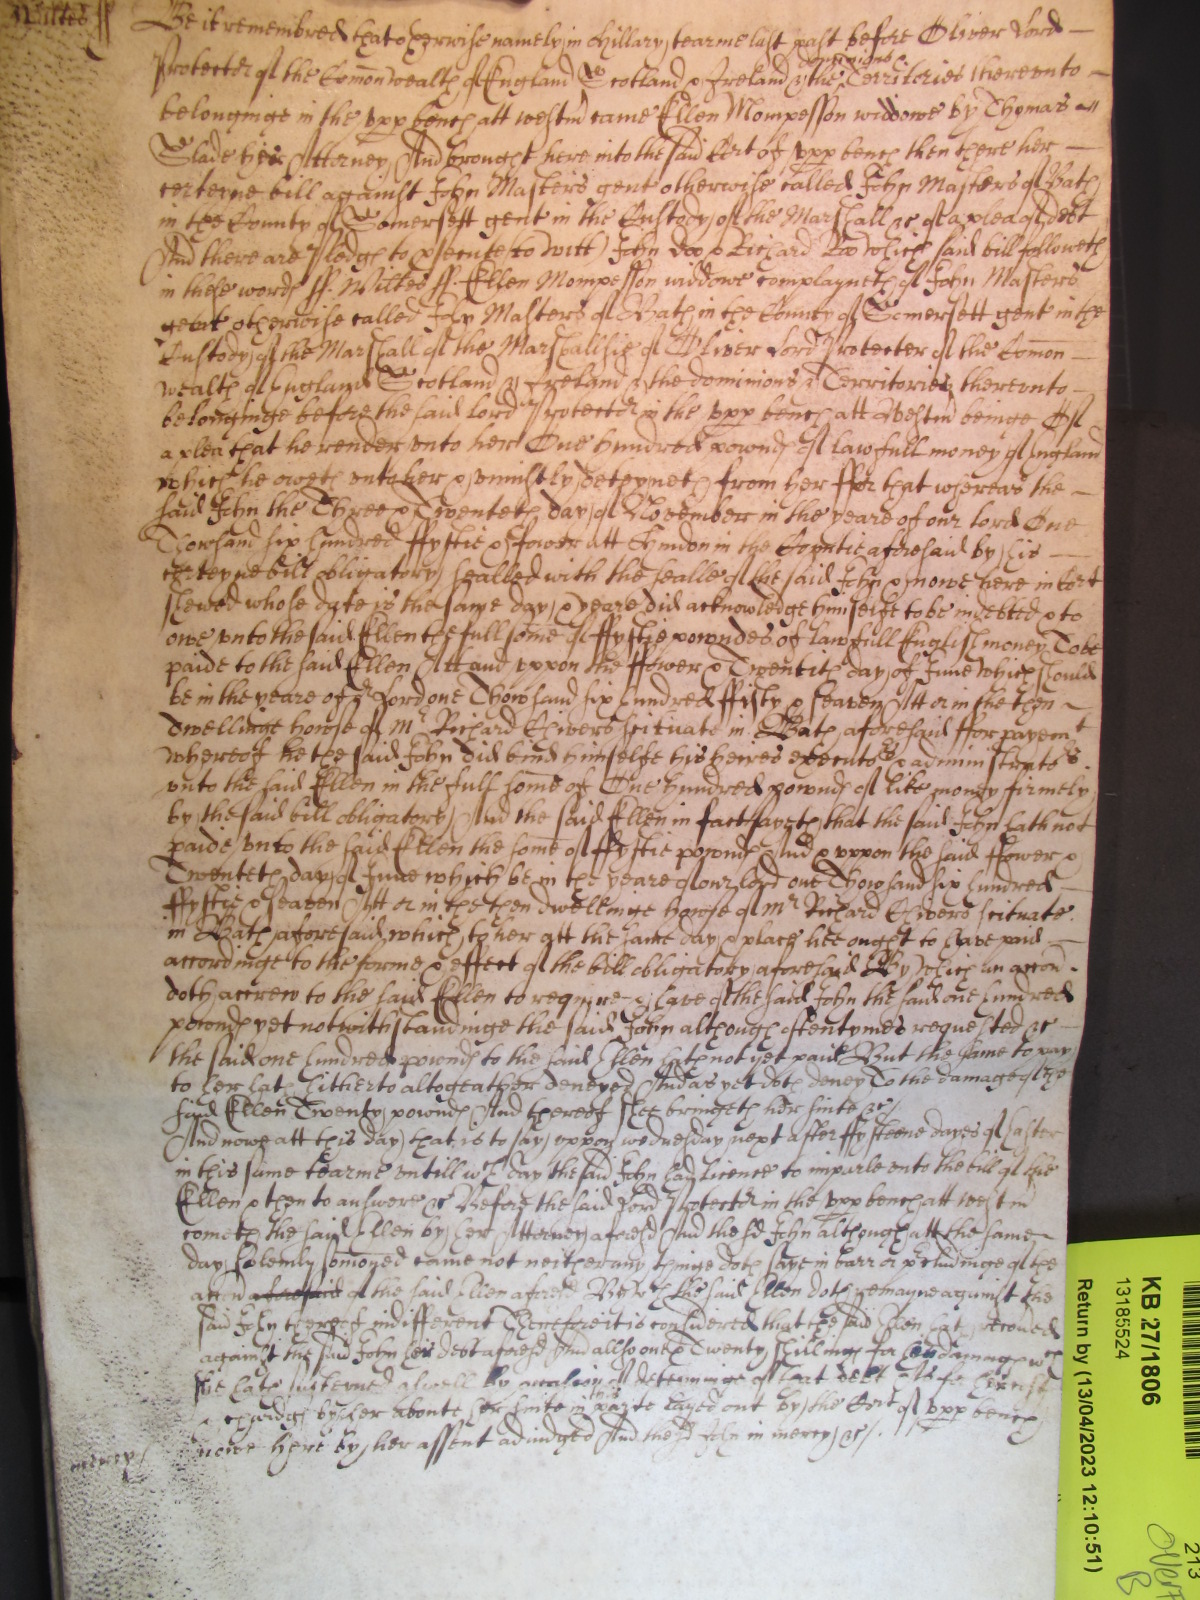 Wiltes ss
Be it remembred that otherwise namely in Hillary tearme last past before Oliver Lord
Protector of the Comonwealth of England Scotland & Ireland & the dominions Territories thereunto
belonginge in the upp bench att westm came Ellen Mompesson widdowe by Thomas
Slade her Attorney And brought here into the said Cort of upp bench then there her
certeine bill against John Masters gent otherwise called John Masters of Bath
in the County of Somersett gent in the Custody of the Marshall &c of a plea of debt
And there are pledges to psecute to witt John Doo & Richard Roo which said bill followeth
in these words ss. Wiltes ss. Ellen Mompesson widdowe complayneth of John Masters
gent otherwise called John Masters of Bath in the County of Somersett gent in the
Custody of the Marshall of the Marshallsie of Oliver Lord Protector of the Comon
wealth of England Scotland & Ireland & the dominions & Territories thereunto
belonginge before the said lord Protector in the upp bench att Westm beinge Of
a plea that he render unto her One hundred pownds of lawfull money of England
which he oweth unto her & uniustly deteyneth from her ffor that whereas the
said John the Three & Twenteth day of November in the yeare of our lord One
Thowsand six hundred ffyftie & fower att Hindon in the Countie aforesaid by his
certeyne bill obligatory sealled with the sealle of the said John & nowe here in Cort
shewed whose date is the same day & yeare did acknowledge himselfe to be indebted & to
owe unto the said Ellen the full some of ffyftie powndes of lawfull English money To be
paide to the said Ellen Att and uppon the ffower & Twentith day of June which should
be in the yeare of or Lord one Thowsand six hundred ffifty & seaven Att or in the then
dwellinge howse of Mr Richard Chivers scituate in Bath aforesaid ffor paymt
whereof he the said John did bind himselfe his heires executors & administrators
unto the said Ellen in the full some of One hundred pownds of like money firmely
by the said bill obligatory And the said Ellen in fact sayeth that the said John hath not
paide unto the said Ellen the some of ffyftie pownds And & uppon the said ffower &
Twenteth day of June which be in the yeare of our lord one Thowsand six hundred
ffyftie & seaven Att or in the then dwellinge howse of Mr Richard Chivers scituate
in Bath aforesaid which to her att the same day & place hee ought to have paid
accordinge to the forme & effect of the bill obligatory aforesaid By which an accon
doth accrew to the said Ellen to require & have of the said John the said one hundred
pownds yet notwithstandinge the said John although oftentymes requested &c
the said one hundred pownds to the said Ellen hath not yet paid But the same to pay
to her hath hitherto altogeather denyed And as yet doth deney To the damage of the
said Ellen Twenty pownds And thereof shee bringeth her suite &c
And nowe att this day that is to say uppon wednesday next after ffyfteene dayes of Easter
in this same tearme untill wch day the said John had licence to imparle unto the bill of the
Ellen & then to answere &c Before the said Lord Protector in the upp bench att westm
cometh the said Ellen by her Attorney aforesd And the sd John although att the same
day solemly somoned came not neither any thinge doth saye in barr or pcludinge of the
accon aforesaid of the said Ellen aforesd the said Ellen doth remayne against the
said John thereof indifferent Therefore it is considered that the said Ellen hath recoved
against the said John her debt aforesd And allso one & Twenty shillings for her damages wch
she hath susteined aswell by occasion of deteyninge of that debt As for her costs
& chardges by her aboute her suite in this parte layed out by the Cort of upp bench
nowe here by her assent adiudged And the sd John in mercy &c
mercy
KB 27/1806
13185524
Return by (13/04/2023 12:10:51)
213
over
B